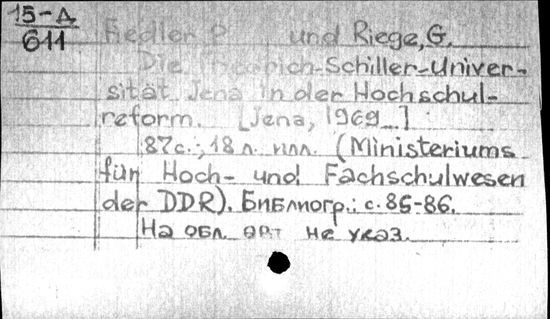 15-Д
611
Fiedler P. und Riege, G.
Die Friedrich-Schiller-Univer-
sität Jena in der Hochschul-
reform. [Jena, 1969]
87с.; 18 л. илл. (Ministeriums
für Hoch- und Fachschulwesen
der DDR). Библиогр.: с. 85-86.
На обл. авт не указ.